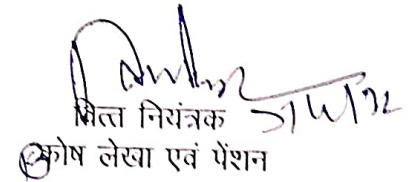 वित्त नियंत्रक
कोष लेखा एवं पेंशन